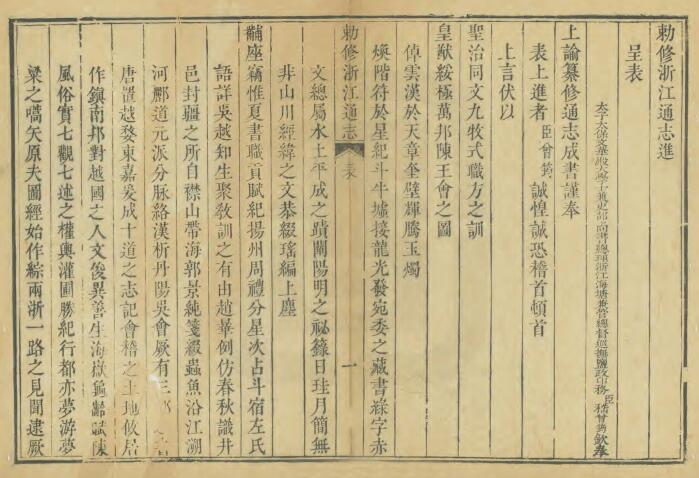 勅修浙江通志進
呈表
太子太保文華殿大學士兼吏部尚書總理浙江海塘兼管總督巡撫鹽政印務臣嵇曾筠欽奉
上諭纂修通志成書謹奉
表上進者臣曾筠誠惶誠恐稽首頓首
上言伏以
聖治同文九牧式職方之訓
皇猷綏極萬邦陳王會之圖
倬雲漢於天章奎壁輝騰玉燭
煥階符於星紀斗牛墟接龍光發宛委之藏書綠字赤
勅修浙江通志
表
一
文總屬水土平成之蹟闡陽明之祕籙日珪月簡無
非山川經緯之文恭綴瑤編上塵
黼座竊惟夏書職貢賦紀揚州周禮分星次占斗宿左氏
語詳吳越知生聚教訓之有由趙曄例仿春秋識井
邑封疆之所自襟山帶海郭景純箋綴蟲魚沿江溯
河酈道元派分脉絡漢析丹陽吳會厥有三
唐置越婺東嘉爰成十道之志記會稽之土地攸居
作鎮南邦對越國之人文俊異善生海嶽龜齡賦陳
風俗實七觀七述之權輿灌圃勝紀行都亦夢游夢
粱之嚆矢原夫圖經始作綜兩浙一路之見聞建厥